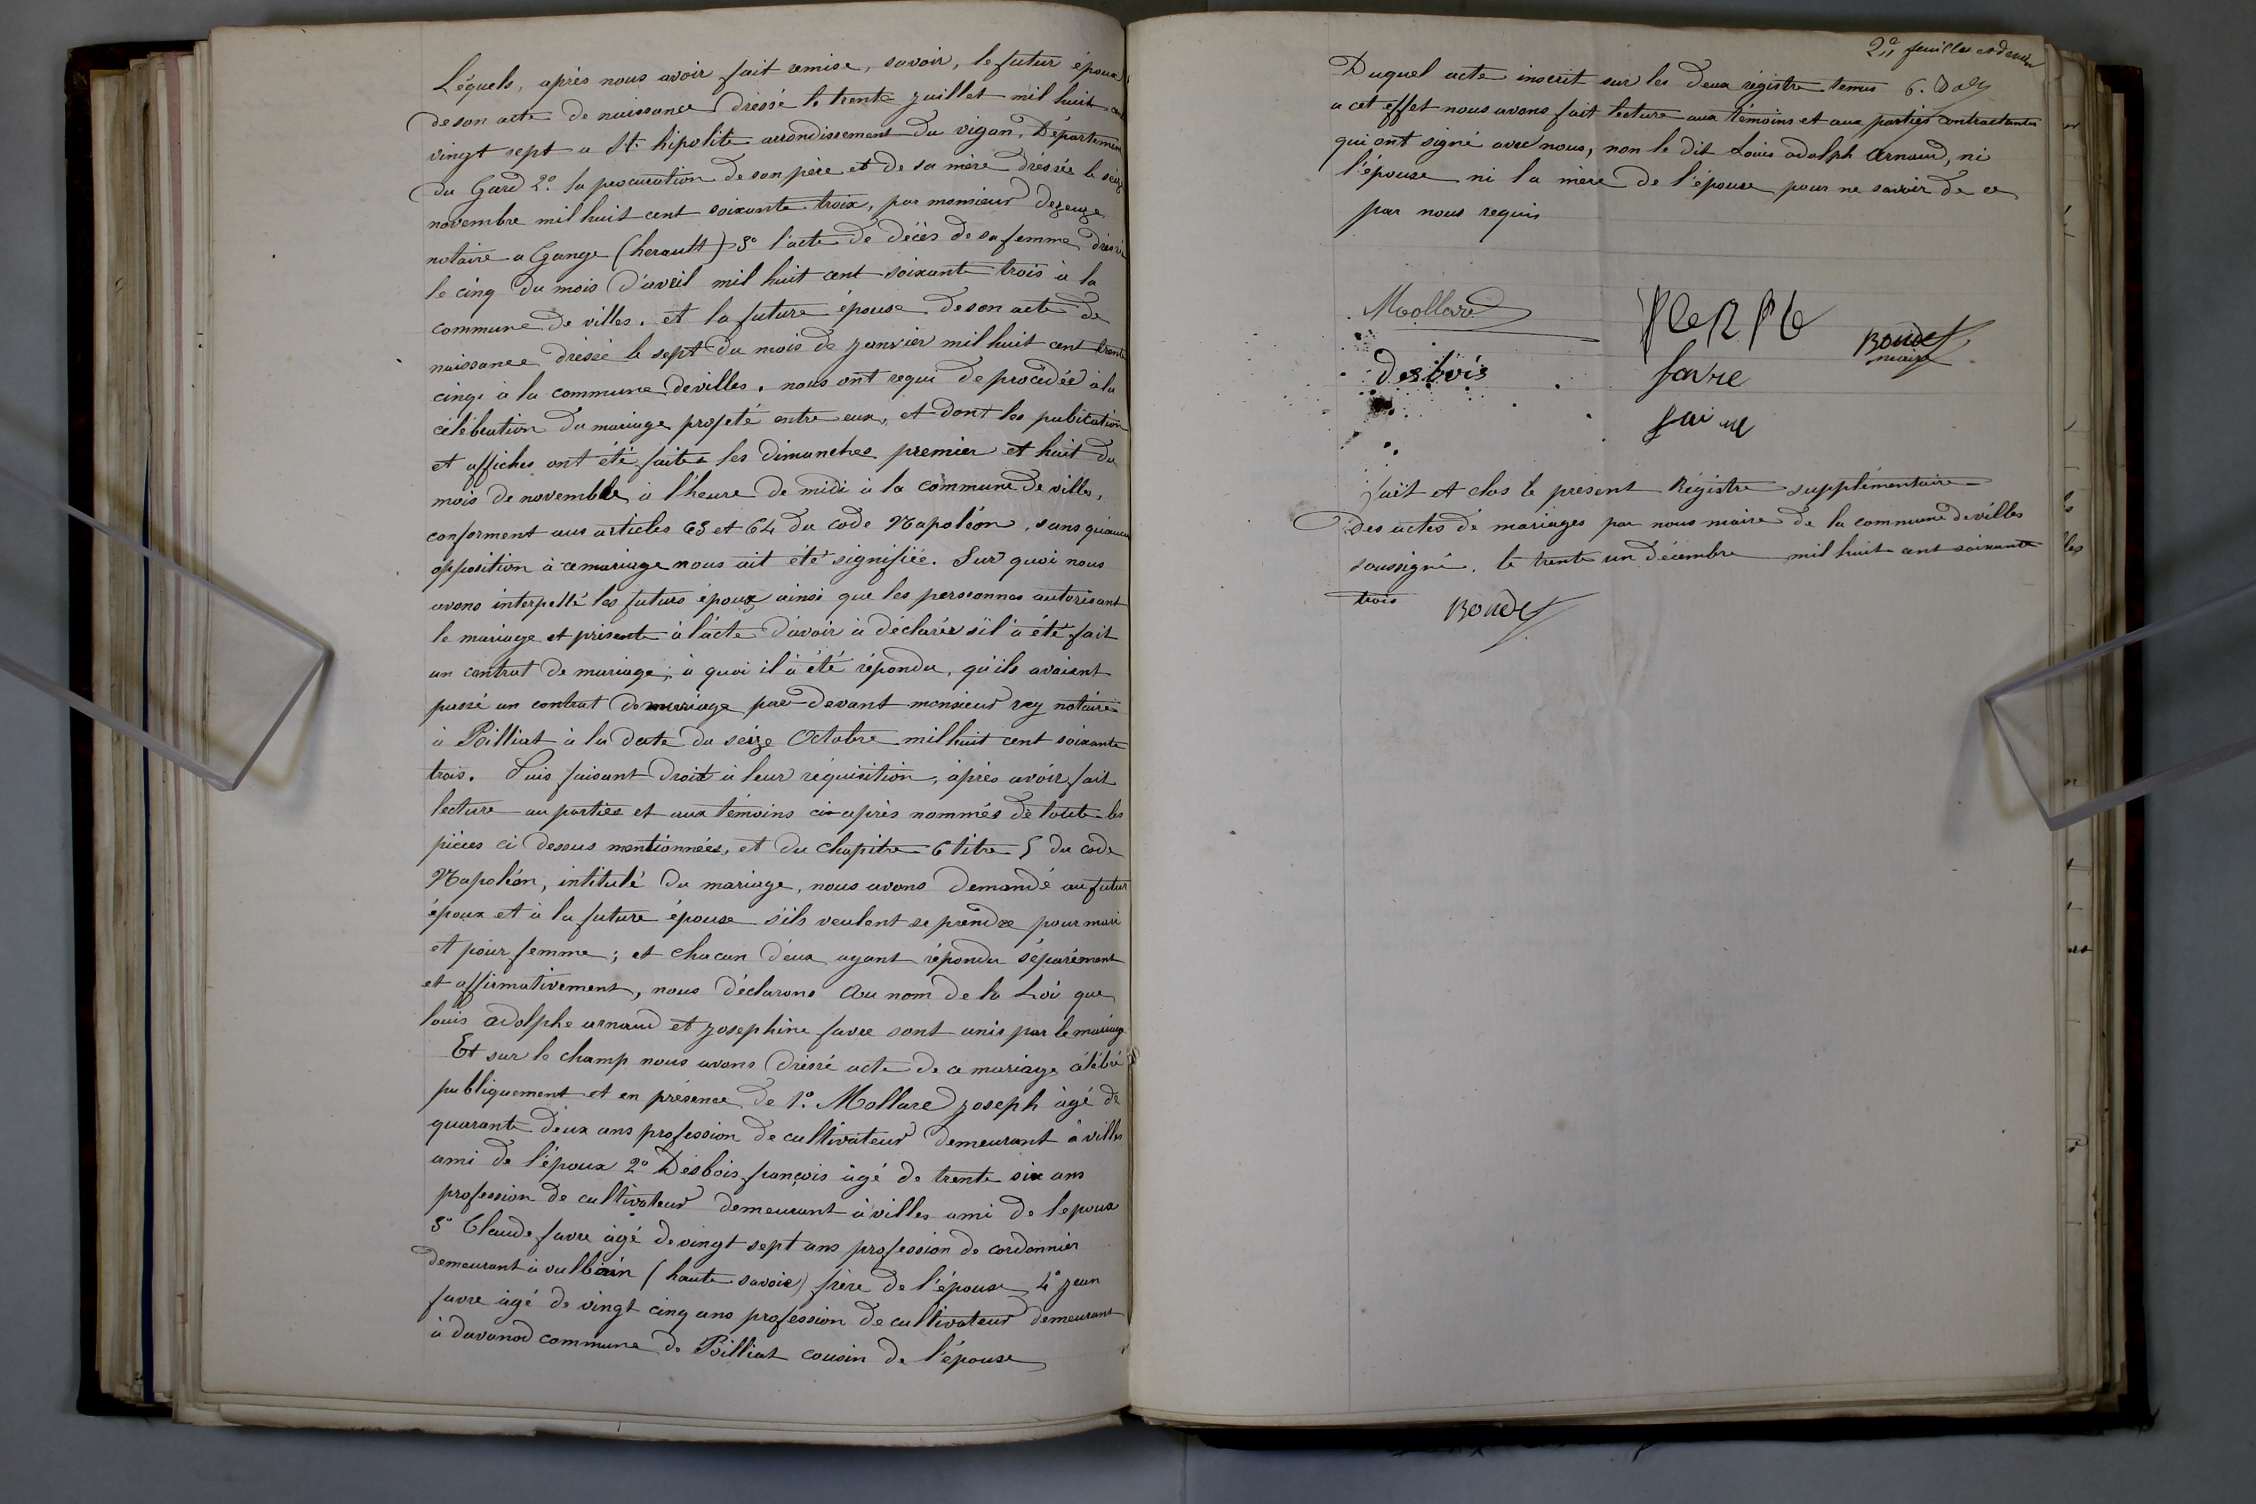 Léquels, après nous avoir fait remise, savoir, le futur époux
de son acte de naissance dressé le trente juillet mil huit cent
vingt sept a St. hipolite arrondissement du vigan, Département
du Gard 2º. la procuration de son père et de sa mère dréssée le seize
novembre mil huit cent soixante trois, par monsieur dezeuze
notaire a Gange (herault) 3º l'acte de décès de sa femme dréssé
le cinq du mois d'avril mil huit cent soixante trois à la
commune de villes. et la future épouse de son acte de
naissance dréssé le sept du mois de janvier mil huit cent trente
cinq à la commune de villes. nous ont requi de procédée à la
célébration du mariage projeté entre eux, et dont les publication
et affiches ont été faites les dimanches premier et huit du
mois de novembre à l'heure de midi à la commune de villes,
conforment aus articles 63 et 64 du code Napoléon, sans qu'aucun
opposition à ce mariage nous ait été signifiée. Sur quoi nous
avons interpellé les futurs époux ainsi que les personnes autorisant
le mariage et présente à l'acte d'avoir à déclarér s'il à été fait
un contrat de mariage; à quoi il à été répondu, qu'ils avaient
passé un contrat de mariage par devant monsieur rey notaire
à Billiat à la date du seize Octobre mil huit cent soixante
trois. Puis faisant droit à leur réquisition, après avoir fait
lecture au parties et aux témoins ci-après nommés de toute les
pièces ci dessus mentionnées, et du chapitre 6 titre 5 du code
Napoléon, intitulé du mariage, nous avons demandé au futur
époux et à la future épouse s'ils veulent se prendre pour mari
et pour femme; et chacun d'eux ayant répondu séparément
et affirmativement, nous déclarons au nom de la Loi que
louis adolphe arnaud et josephine favre sont unis par le mariage
Et sur le champ nous avons dréssé acte de ce mariage célébré
publiquement et en présence de 1º. Mollard joseph âgé de
quarante deux ans profession de cultivateur demeurant à villes
ami de l'époux 2º Désbois françois âgé de trente six ans
profession de cultivateur demeurant à villes ami de lepoux
3º Claude favre âgé de vingt sept ans profession de cordonnier
demeurant à vulbain (haute savoie) frère de l'épouse 4º jean
favre âgé de vingt cinq ans profession de cultivateur demeurant
à davanod commune de Billiat cousin de l'épouse
Duquel acte inscrit sur les deux régistre tenus
a cet effet nous avons fait lecture aux témoins et aux parties contractantes
qui ont signé avec nous, non le dit Louis adolph Arnaud, ni
l'épouse ni la mère de l'épouse pour ne savoir de ce
par nous requis
Mollard
Boude
maire
desbois
favre
favre
fait et clos le présent Régistre supplémentaire
Des actes de mariages par nous maire de la commune de villes
soussigné. le trente un décembre mil huit cent soixante
trois
Boude